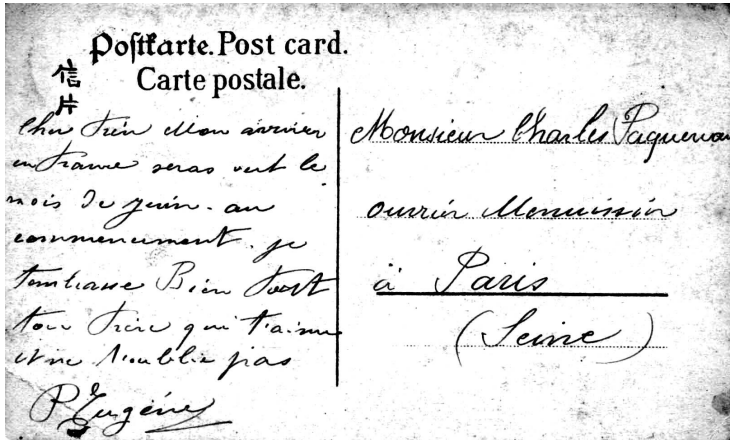 Postkarte. Post card.
Carte postale.
信
片
Cher Frère Mon arrivier
en France seras vert le
mois de juin. au
commencement. je
t'embrasse Bien Fort
ton Frère qui t'aime
et ne t'oublie pas
P Eugène
Monsieur Charles
ouvrier Menuisier
à Paris
(Seine)